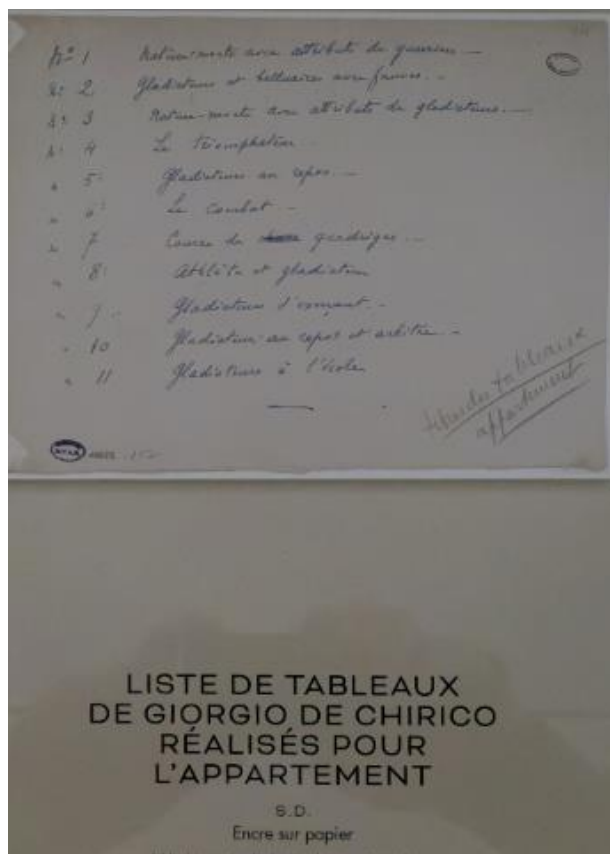 Nº 1 Nature-morte avec attributs de guerriers —
Nº 2 Gladiateurs et belluaires avec fauves. —
Nº 3 Nature-morte avec attributs de gladiateurs. —
Nº 4 Le triomphateur. —
" 5: Gladiateurs au repos. —
" 6: Le combat. —
" 7 Course de quadriges. —
" 8: Athlète et gladiateur
" 9 Gladiateurs s'exerçant. —
" 10 Gladiateurs au repos et arbitre. —
" 11 Gladiateurs à l'école
tableaux
appartement
LISTE DE TABLEAUX
DE GIORGIO DE CHIRICO
RÉALISÉS POUR
L'APPARTEMENT
S.D.
Encre sur papier